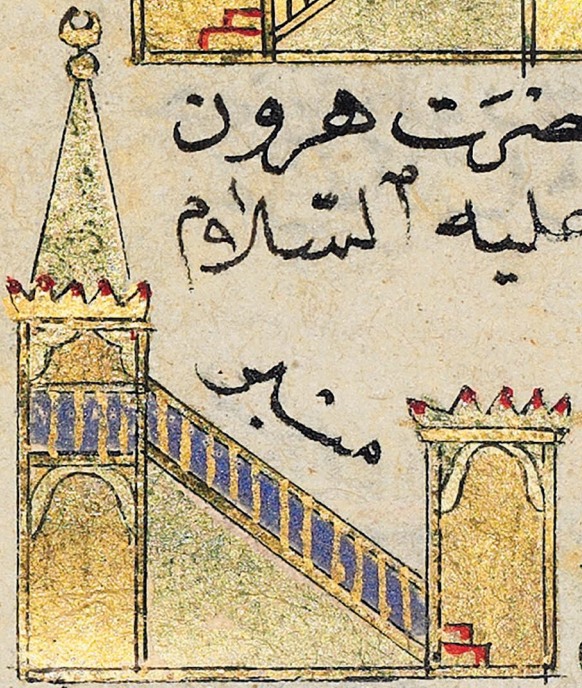 حضرت هرون
عليه السلام
منبر